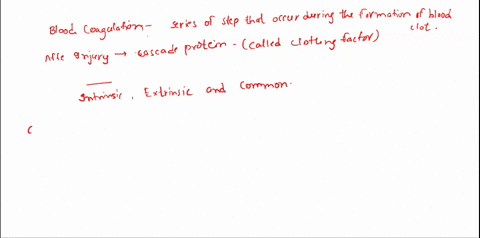 Blood Coagulation - series of step that occur during the formation of blood clot.
Afte Injury → cascade protein - (called clotting factor)
Intrinsic, Extrinsic and Common.
(